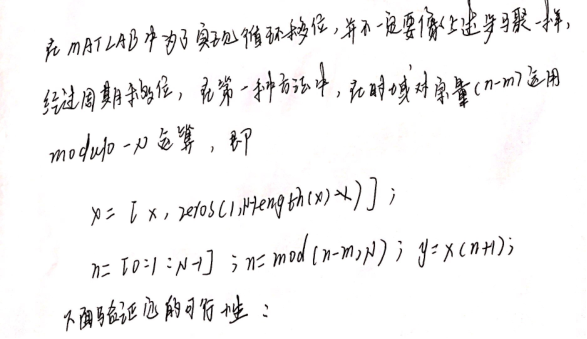 在MATLAB中为了实现循环移位,并不一定要像上述步骤一样,
经过周期移位,在第一种方法中,在时域对变量(n-m)运用
modulo-N运算,即
x=[x,zeros(1,N-length(x))];
n=[0:1:N-1];n=mod(n-m,N);y=x(n+1);
下面验证它的可行性: